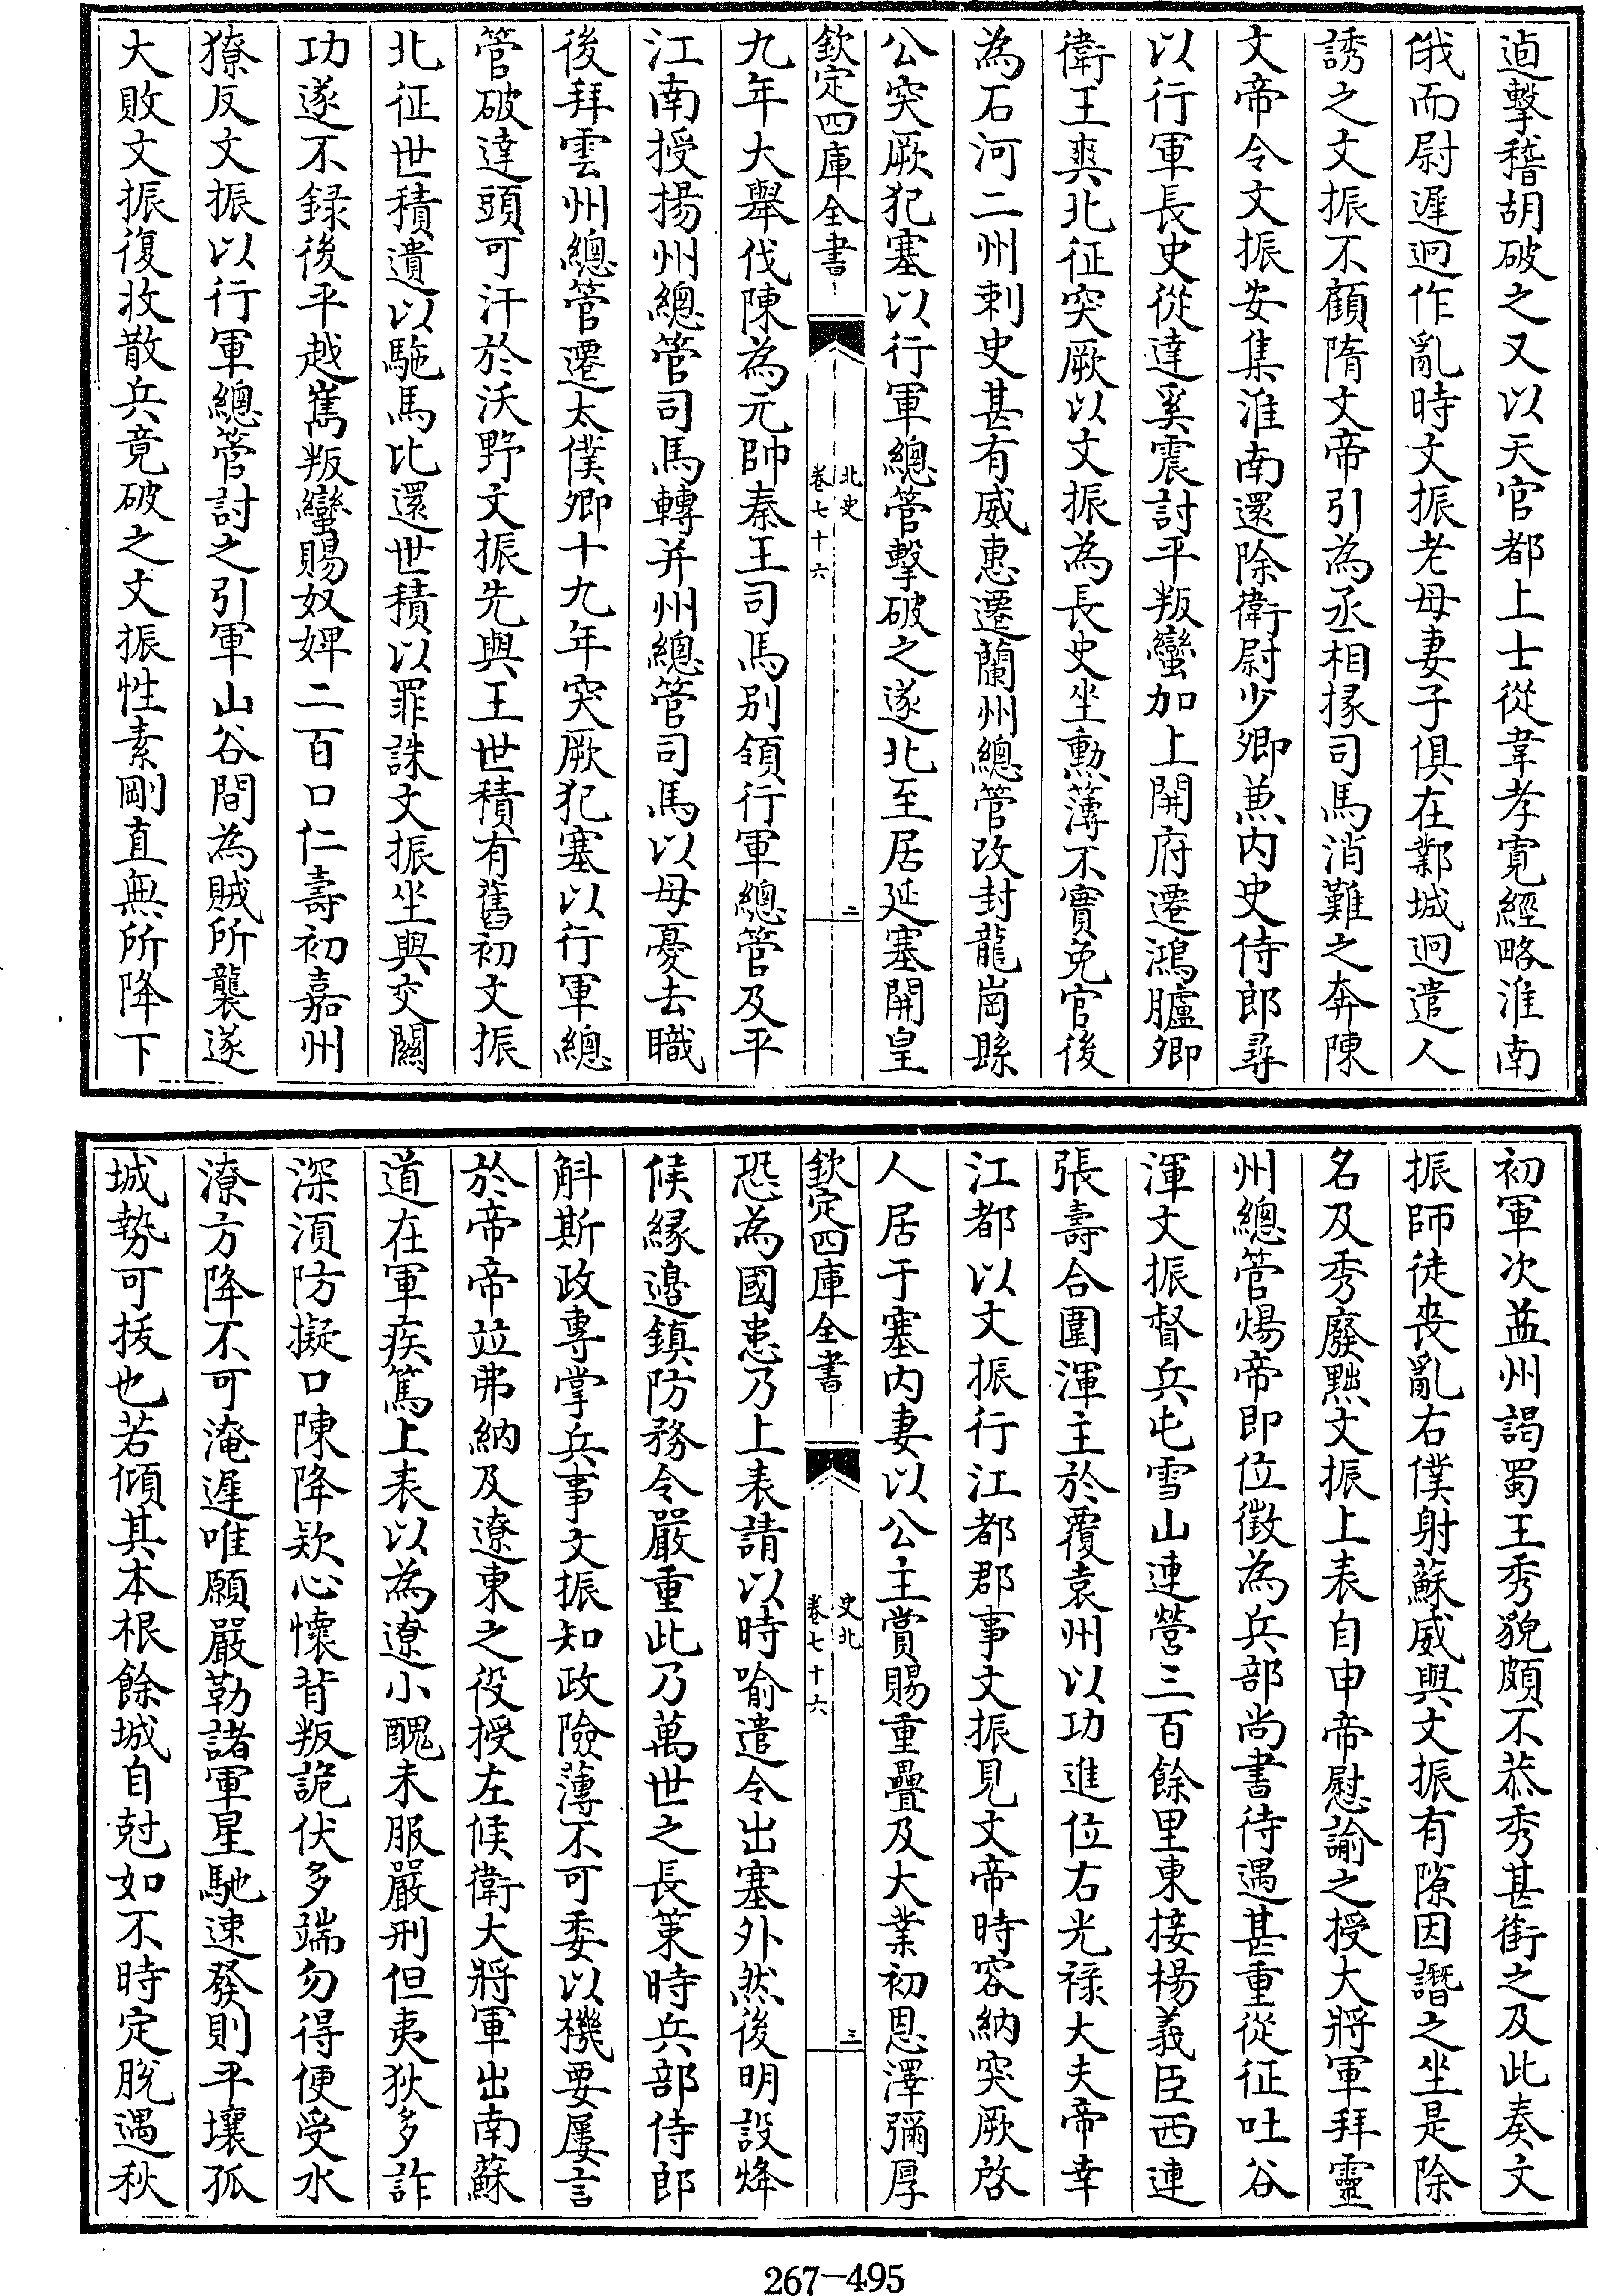 道擊稽胡破之又以天官都上士從韋孝寛經略淮南
俄而尉遲迥作亂時文振老母妻子俱在鄴城迥遣人
誘之文振不顧隋文帝引為丞相掾司馬消難之奔陳
文帝令文振安集淮南還除衛尉少卿兼内史侍郎尋
以行軍長史從達奚震討平叛蠻加上開府遷鴻臚卿
衛王爽北征突厥以文振為長史坐勲簿不實免官後
為石河二州刺史甚有威惠遷蘭州總管改封龍崗縣
公突厥犯塞以行軍總管擊破之遂北至居延塞開皇
欽定四庫全書
北史
卷七十六
二
九年大舉伐陳為元帥秦王司馬别領行軍總管及平
江南授揚州總管司馬轉并州總管司馬以母憂去職
後拜雲州總管遷太僕卿十九年突厥犯塞以行軍總
管破達頭可汗於沃野文振先與王世積有舊初文振
北征世積遺以駞馬比還世積以罪誅文振坐與交關
功遂不録後平越嶲叛蠻賜奴婢二百口仁壽初嘉州
獠反文振以行軍總管討之引軍山谷間為賊所襲遂
大敗文振復收散兵竟破之文振性素剛直無所降下
初軍次益州謁蜀王秀貌頗不恭秀甚銜之及此奏文
振師徒喪亂右僕射蘇威與文振有隙因譖之坐是除
名及秀廢黜文振上表自申帝慰諭之授大將軍拜靈
州總管煬帝即位徵為兵部尚書待遇甚重從征吐谷
渾文振督兵屯雪山連營三百餘里東接楊義臣西連
張壽合圍渾主於覆袁州以功進位右光禄大夫帝幸
江都以文振行江都郡事文振見文帝時容納突厥啓
人居于塞内妻以公主賞賜重疊及大業初恩澤彌厚
欽定四庫全書
史北
卷七十六
三
恐為國患乃上表請以時喻遣令出塞外然後明設烽
候縁邉鎮防務令嚴重此乃萬世之長策時兵部侍郎
斛斯政專掌兵事文振知政險薄不可委以機要屢言
於帝帝竝弗納及遼東之役授左候衛大將軍出南蘇
道在軍疾篤上表以為遼小醜未服嚴刑但夷狄多詐
深須防擬口陳降欵心懷背叛詭伏多端勿得便受水
潦方降不可淹遲唯願嚴勒諸軍星馳速發則平壤孤
城勢可拔也若傾其本根餘城自尅如不時定脱遇秋
267-495